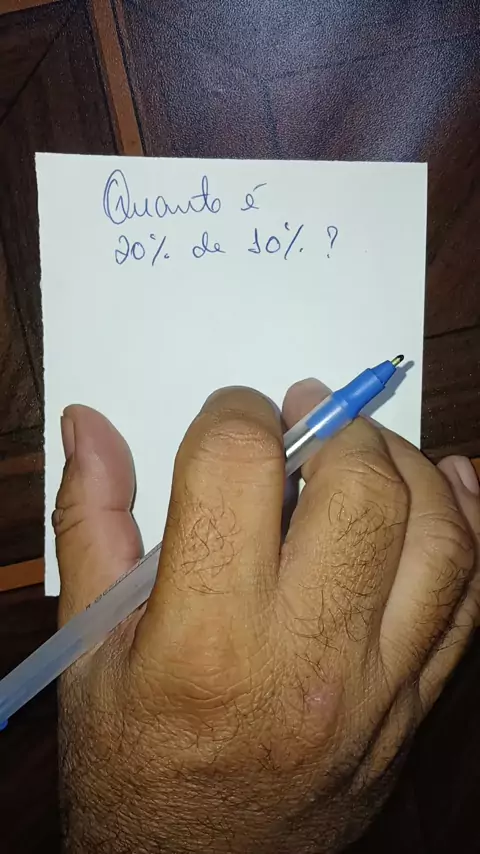 Quanto é
20% de 10% ?